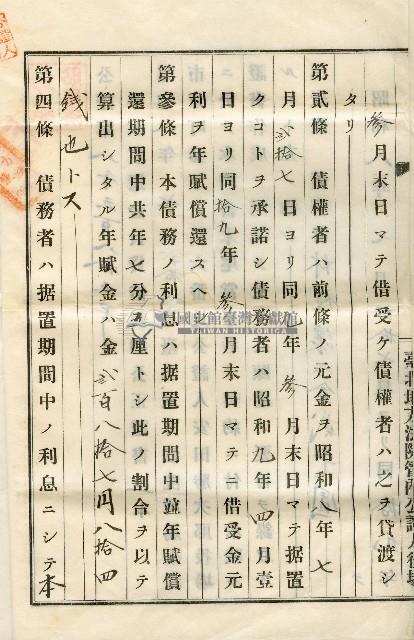 參月末日マテ借受ケ債權者ハ之ヲ貸渡シ
タリ
第貳條　債權者ハ前條ノ元金ヲ昭和八年七
月貳拾七日ヨリ同九年參月末日マテ据置
クコトヲ承諾シ債務者ハ昭和九年四月壹
日ヨリ同拾九年參月末日マテニ借受金元
利ヲ年賦償還スヘシ
第參條　本債務ノ利息ハ据置期間中竝年賦償
還期間中共年七分 厘トシ此ノ割合ヲ以テ
算出シタル年賦金ハ金貳百八拾七円八拾四
錢也トス
第四條　債務者ハ据置期間中ノ利息ニシテ本
臺北地方法院管內公證人役場
國史館臺灣文獻館
TAIWAN HISTORICA